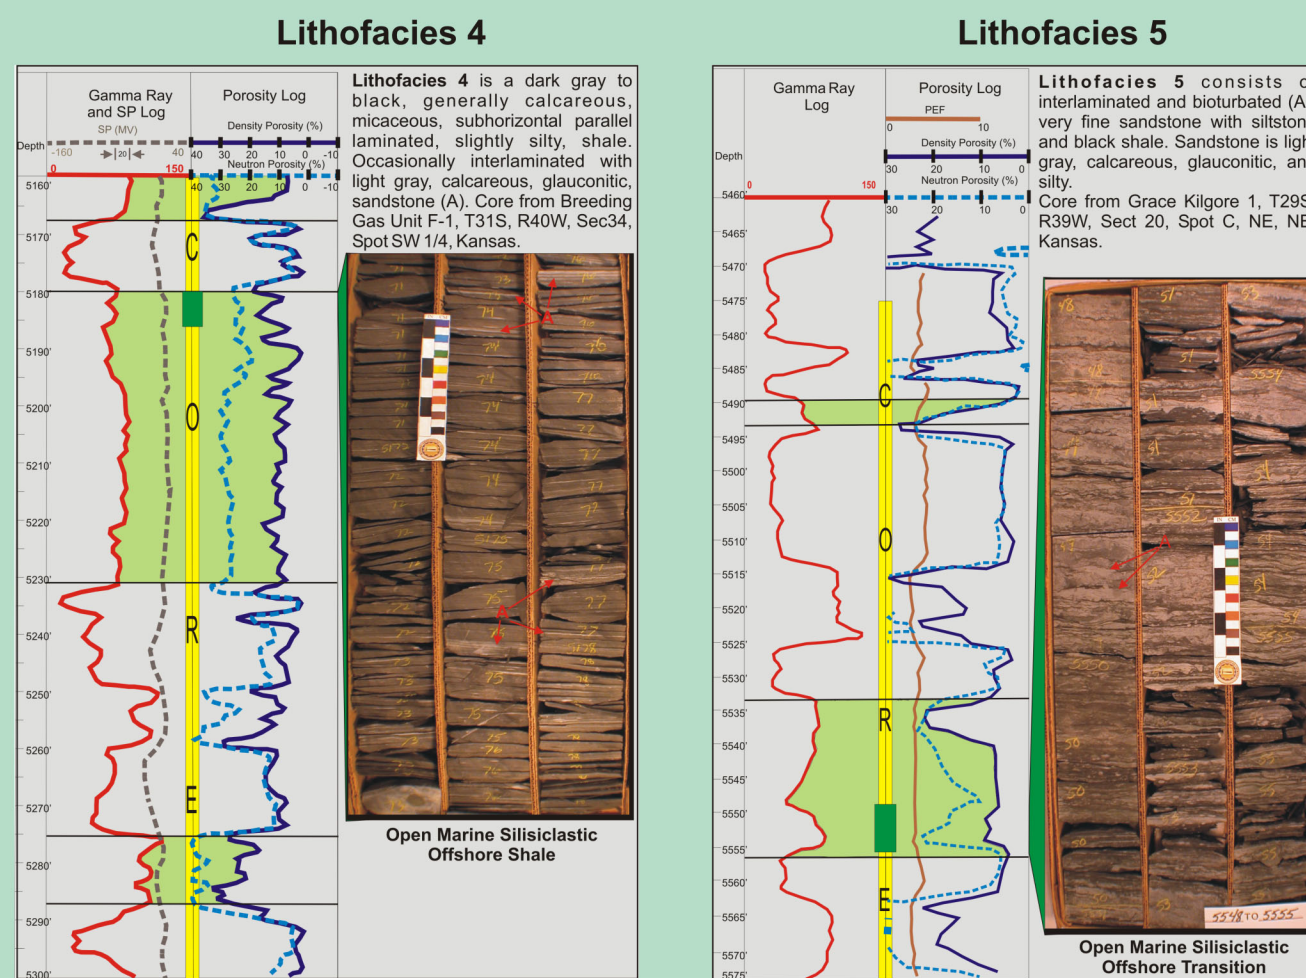 Lithofacies 4
Gamma Ray
and SP Log
Porosity Log
SP (MV)
Density Porosity (%)
Depth
-160
20
40
40 30 20 10 0 -10
Neutron Porosity (%)
0
150
40 30 20 10 0 -10
5160'
5170'
5180'
5190'
5200'
5210'
5220'
5230'
5240'
5250'
5260'
5270'
5280'
5290'
5300'
C
O
R
E
Lithofacies 4 is a dark gray to
black, generally calcareous,
micaceous, subhorizontal parallel
laminated, slightly silty, shale.
Occasionally interlaminated with
light gray, calcareous, glauconitic,
sandstone (A). Core from Breeding
Gas Unit F-1, T31S, R40W, Sec34,
Spot SW 1/4, Kansas.
A
A
Open Marine Silisiclastic
Offshore Shale
Lithofacies 5
Gamma Ray
Log
Porosity Log
PEF
0 10
Density Porosity (%)
Depth
30 20 10 0
Neutron Porosity (%)
0
150
30 20 10 0
5460'
5465'
5470'
5475'
5480'
5485'
5490'
5495'
5500'
5505'
5510'
5515'
5520'
5525'
5530'
5535'
5540'
5545'
5550'
5555'
5560'
5565'
5570'
5575'
C
O
R
E
Lithofacies 5 consists
interlaminated and bioturbated (A
very fine sandstone with siltston
and black shale. Sandstone is ligh
gray, calcareous, glauconitic, an
silty.
Core from Grace Kilgore 1, T29S
R39W, Sect 20, Spot C, NE, NE
Kansas.
A
5548 TO 5555
Open Marine Silisiclastic
Offshore Transition